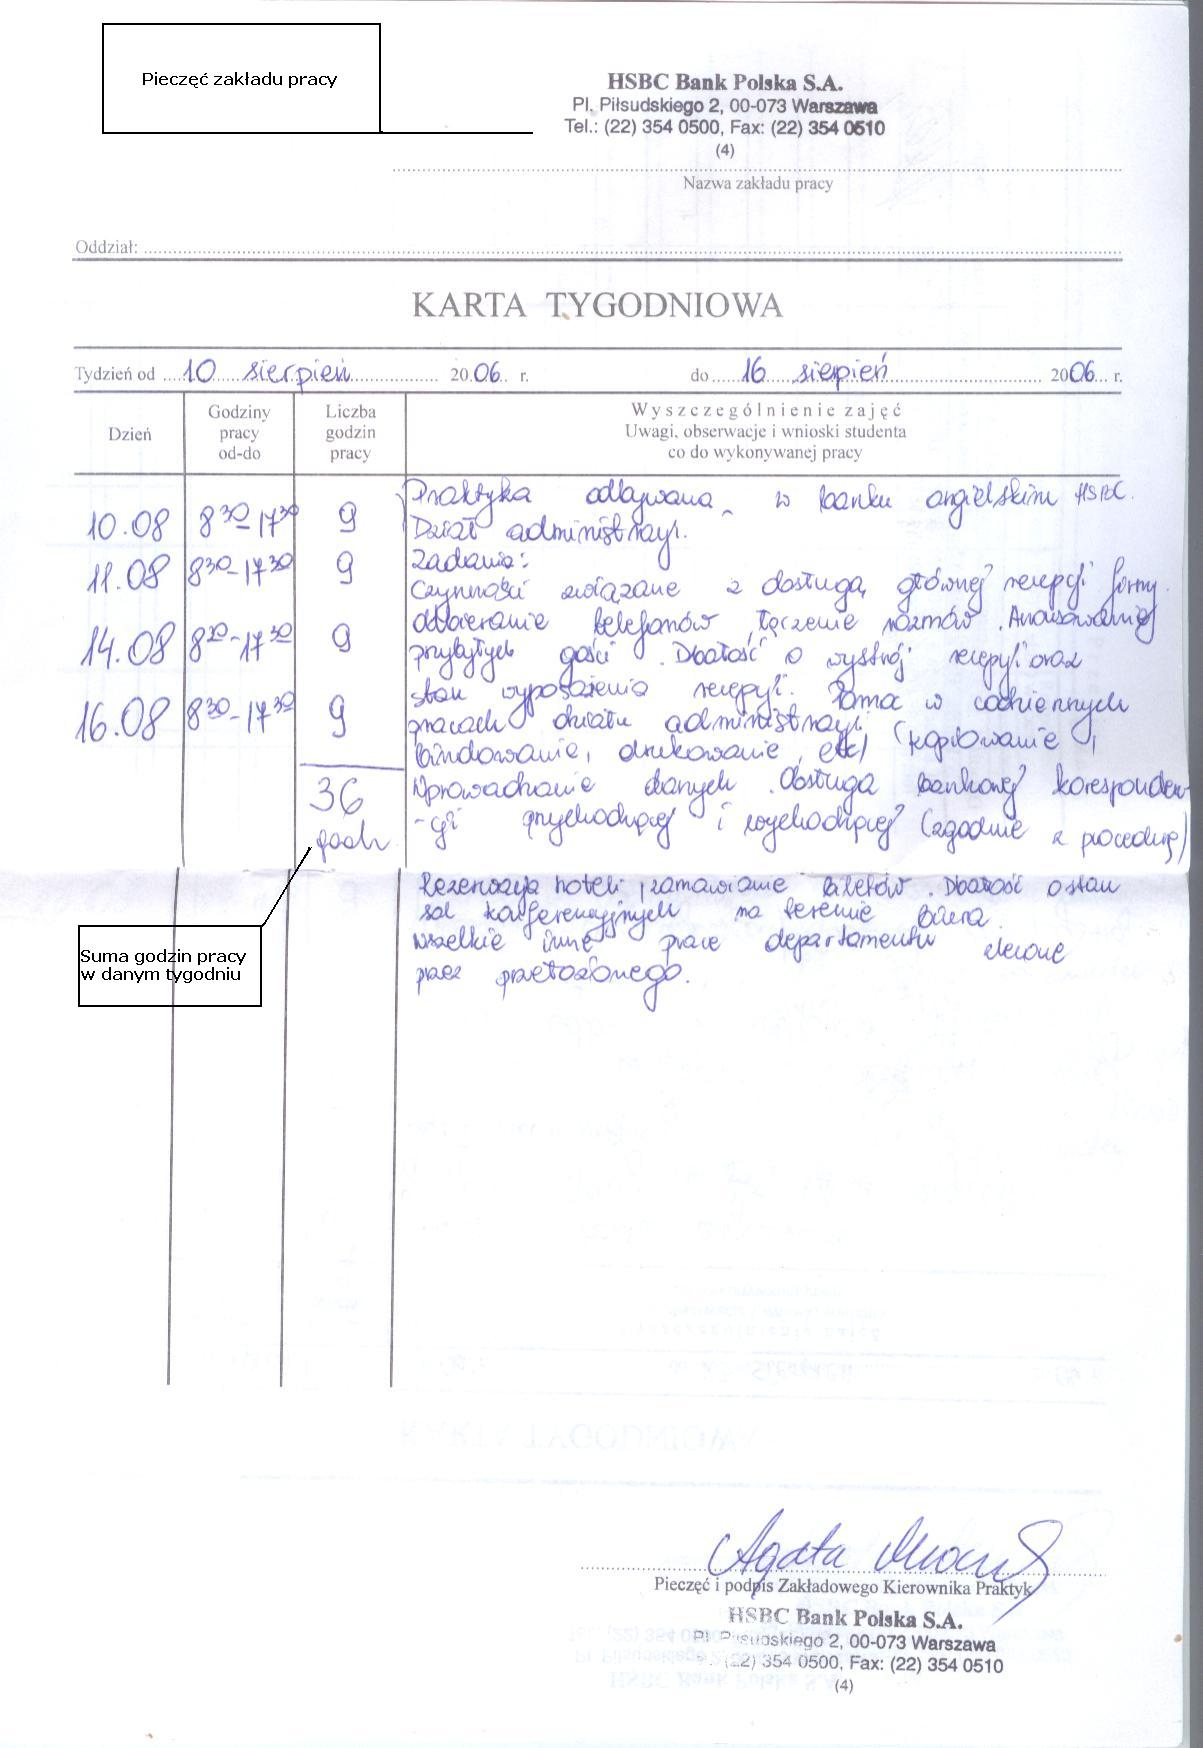 Pieczęć zakładu pracy
HSBC Bank Polska S.A.
Pl. Piłsudskiego 2, 00-073 Warszawa
Tel.: (22) 354 0500, Fax: (22) 354 0510
(4)
Nazwa zakładu pracy
Oddział:
KARTA TYGODNIOWA
Tydzień od 10 sierpień 2006 r. do 16 sierpień 2006 r.
Dzień
Godziny pracy od-do
Liczba godzin pracy
Wyszczególnienie zajęć
Uwagi, obserwacje i wnioski studenta
co do wykonywanej pracy
10.08 8 30 - 17 30 9
11.08 8 30 - 17 30 9
14.08 8 30 - 17 30 9
16.08 8 30 - 17 30 9
36
godz.
Praktyka odbywana w banku angielskim HSBC.
Dział administracji.
Zadania:
Czynności związane z obsługą głównej recepcji firmy.
odbieranie telefonów, łączenie rozmów. Anonsowanie
przybyłych gości. Dbałość o wystrój recepcji oraz
stan wyposażenia recepcji. Pomoc w codziennych
pracach działu administracji (kopiowanie,
bindowanie, drukowanie, etc)
Wprowadzanie danych. Obsługa bankowej koresponden
-cji przychodzącej i wychodzącej (zgodnie z procedurą)
Rezerwacja hoteli, zamawianie biletów. Dbałość o stan
sal konferencyjnych na terenie biura.
wszelkie inne prace departamentu zlecone
przez przełożonego.
Suma godzin pracy
w danym tygodniu
Agata
Pieczęć i podpis Zakładowego Kierownika Praktyk
HSBC Bank Polska S.A.
Pl. Piłsudskiego 2, 00-073 Warszawa
(22) 354 0500, Fax: (22) 354 0510
(4)